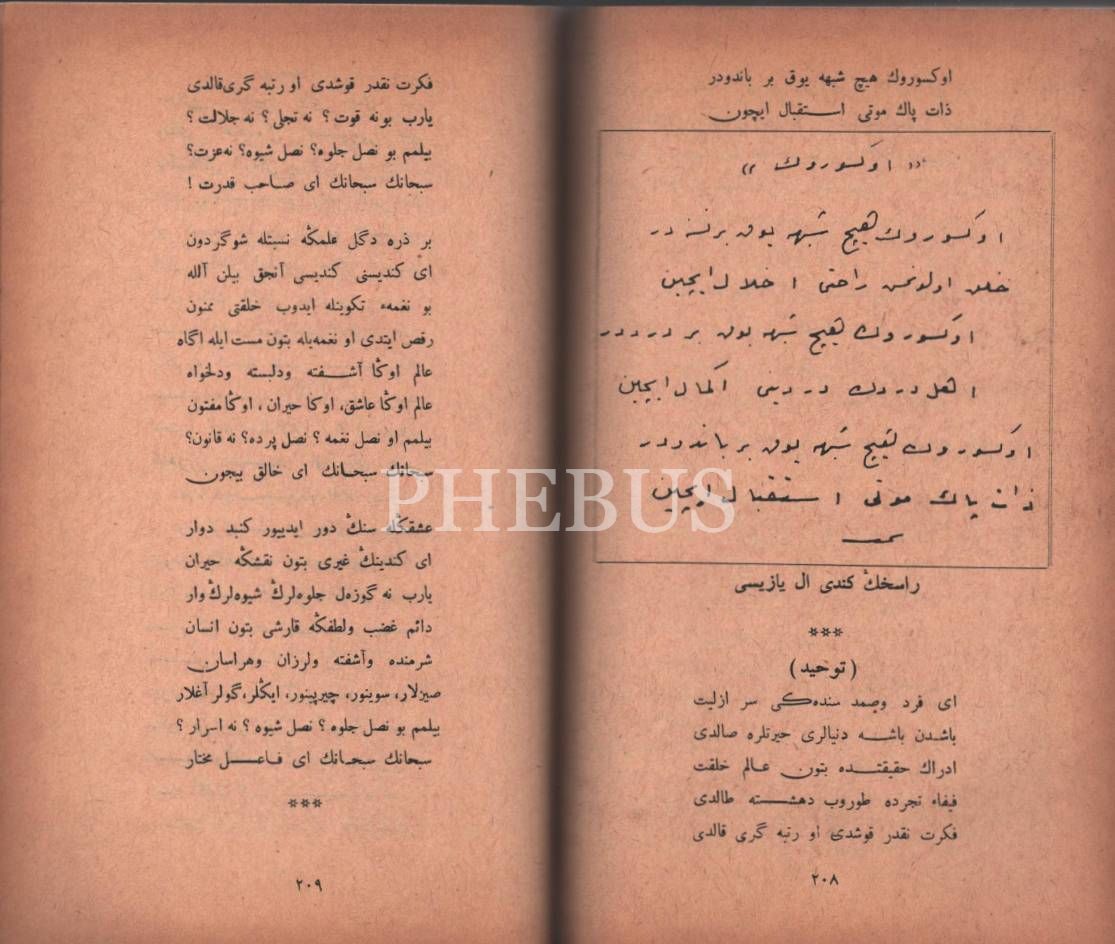 اوكسوروك هیچ شبهه یوق بر باندودر
ذات پاك موتی استقبال ایچون
«اوكسوروك»
اوكسوروك هیچ شبهه یوق برنسنه در
خلق اولونمس راحتی اخلال ایچین
اوكسوروك هیچ شبهه یوق بر درددر
اهل دردك دردینی اكمال ایچین
اوكسوروك هیچ شبهه یوق بر باندودر
ذات پاك موتی استقبال ایچین
راسخڭ كندی ال یازیسی
***
(توحید)
ای فرد وصمد سنده‌كی سر ازلیت
باشدن باشه دنیالری حیرتلره صالدی
ادراك حقیقتده بتون عالم خلقت
فیفاء تجرده طوروب دهشته طالدی
فكرت نقدر قوشدی او رتبه گری قالدی
٢٠٨
فكرت نقدر قوشدی او رتبه گری قالدی
یارب بونه قوت؟ نه تجلی؟ نه جلالت؟
بیلمم بو نصل جلوه؟ نصل شیوه؟ نه عزت؟
سبحانك سبحانك ای صاحب قدرت!
بر ذره دگل علمڭه نسبتله شو گردون
ای كندیسنی كندیسی آنجق بیلن آلله
بو نغمهء تكوینله ایدوب خلقتی ممنون
رقص ایتدی او نغمه‌یله بتون مست ایله اگاه
عالم اوڭا آشفته ودلبسته ودلخواه
عالم اوڭا عاشق، اوكا حیران، اوڭا مفتون
بیلمم او نصل نغمه؟ نصل پرده؟ نه قانون؟
سبحانك سبحانك ای خالق بیچون
عشقڭله سنڭ دور ایدییور گنبد دوار
ای كندینڭ غیری بتون نقشڭه حیران
یارب نه گوزه‌ل جلوه‌لرڭ شیوه‌لرڭ وار
دائم غضب ولطفڭه قارشی بتون انسان
شرمنده وآشفته ولرزان وهراسان
صیزلار، سوینور، چیرپینور، ایڭلر، گولر آغلار
بیلمم بو نصل جلوه؟ نصل شیوه؟ نه اسرار؟
سبحانك سبحانك ای فاعل مختار
***
٢٠٩
PHEBUS